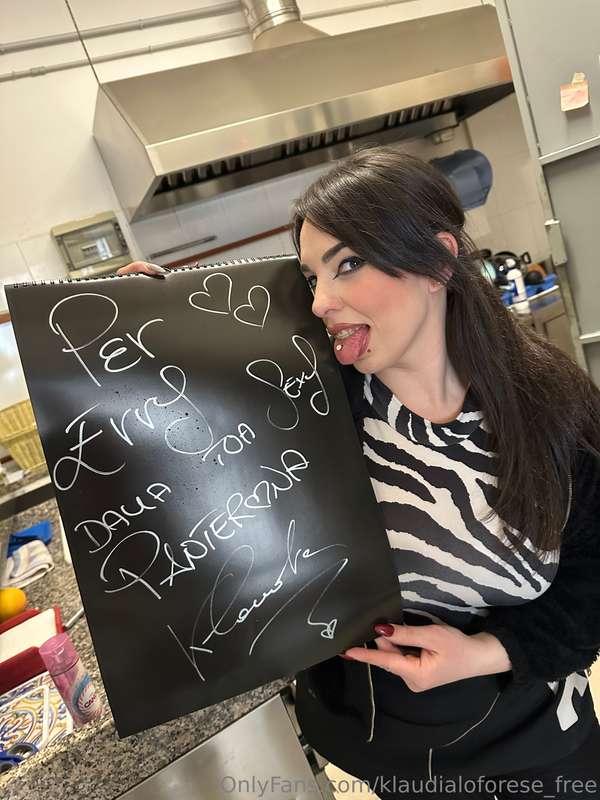 Per
Erry
DALLA TUA Sexy
PANTERONA
Klaudia
OnlyFans.com/klaudialoforese_free